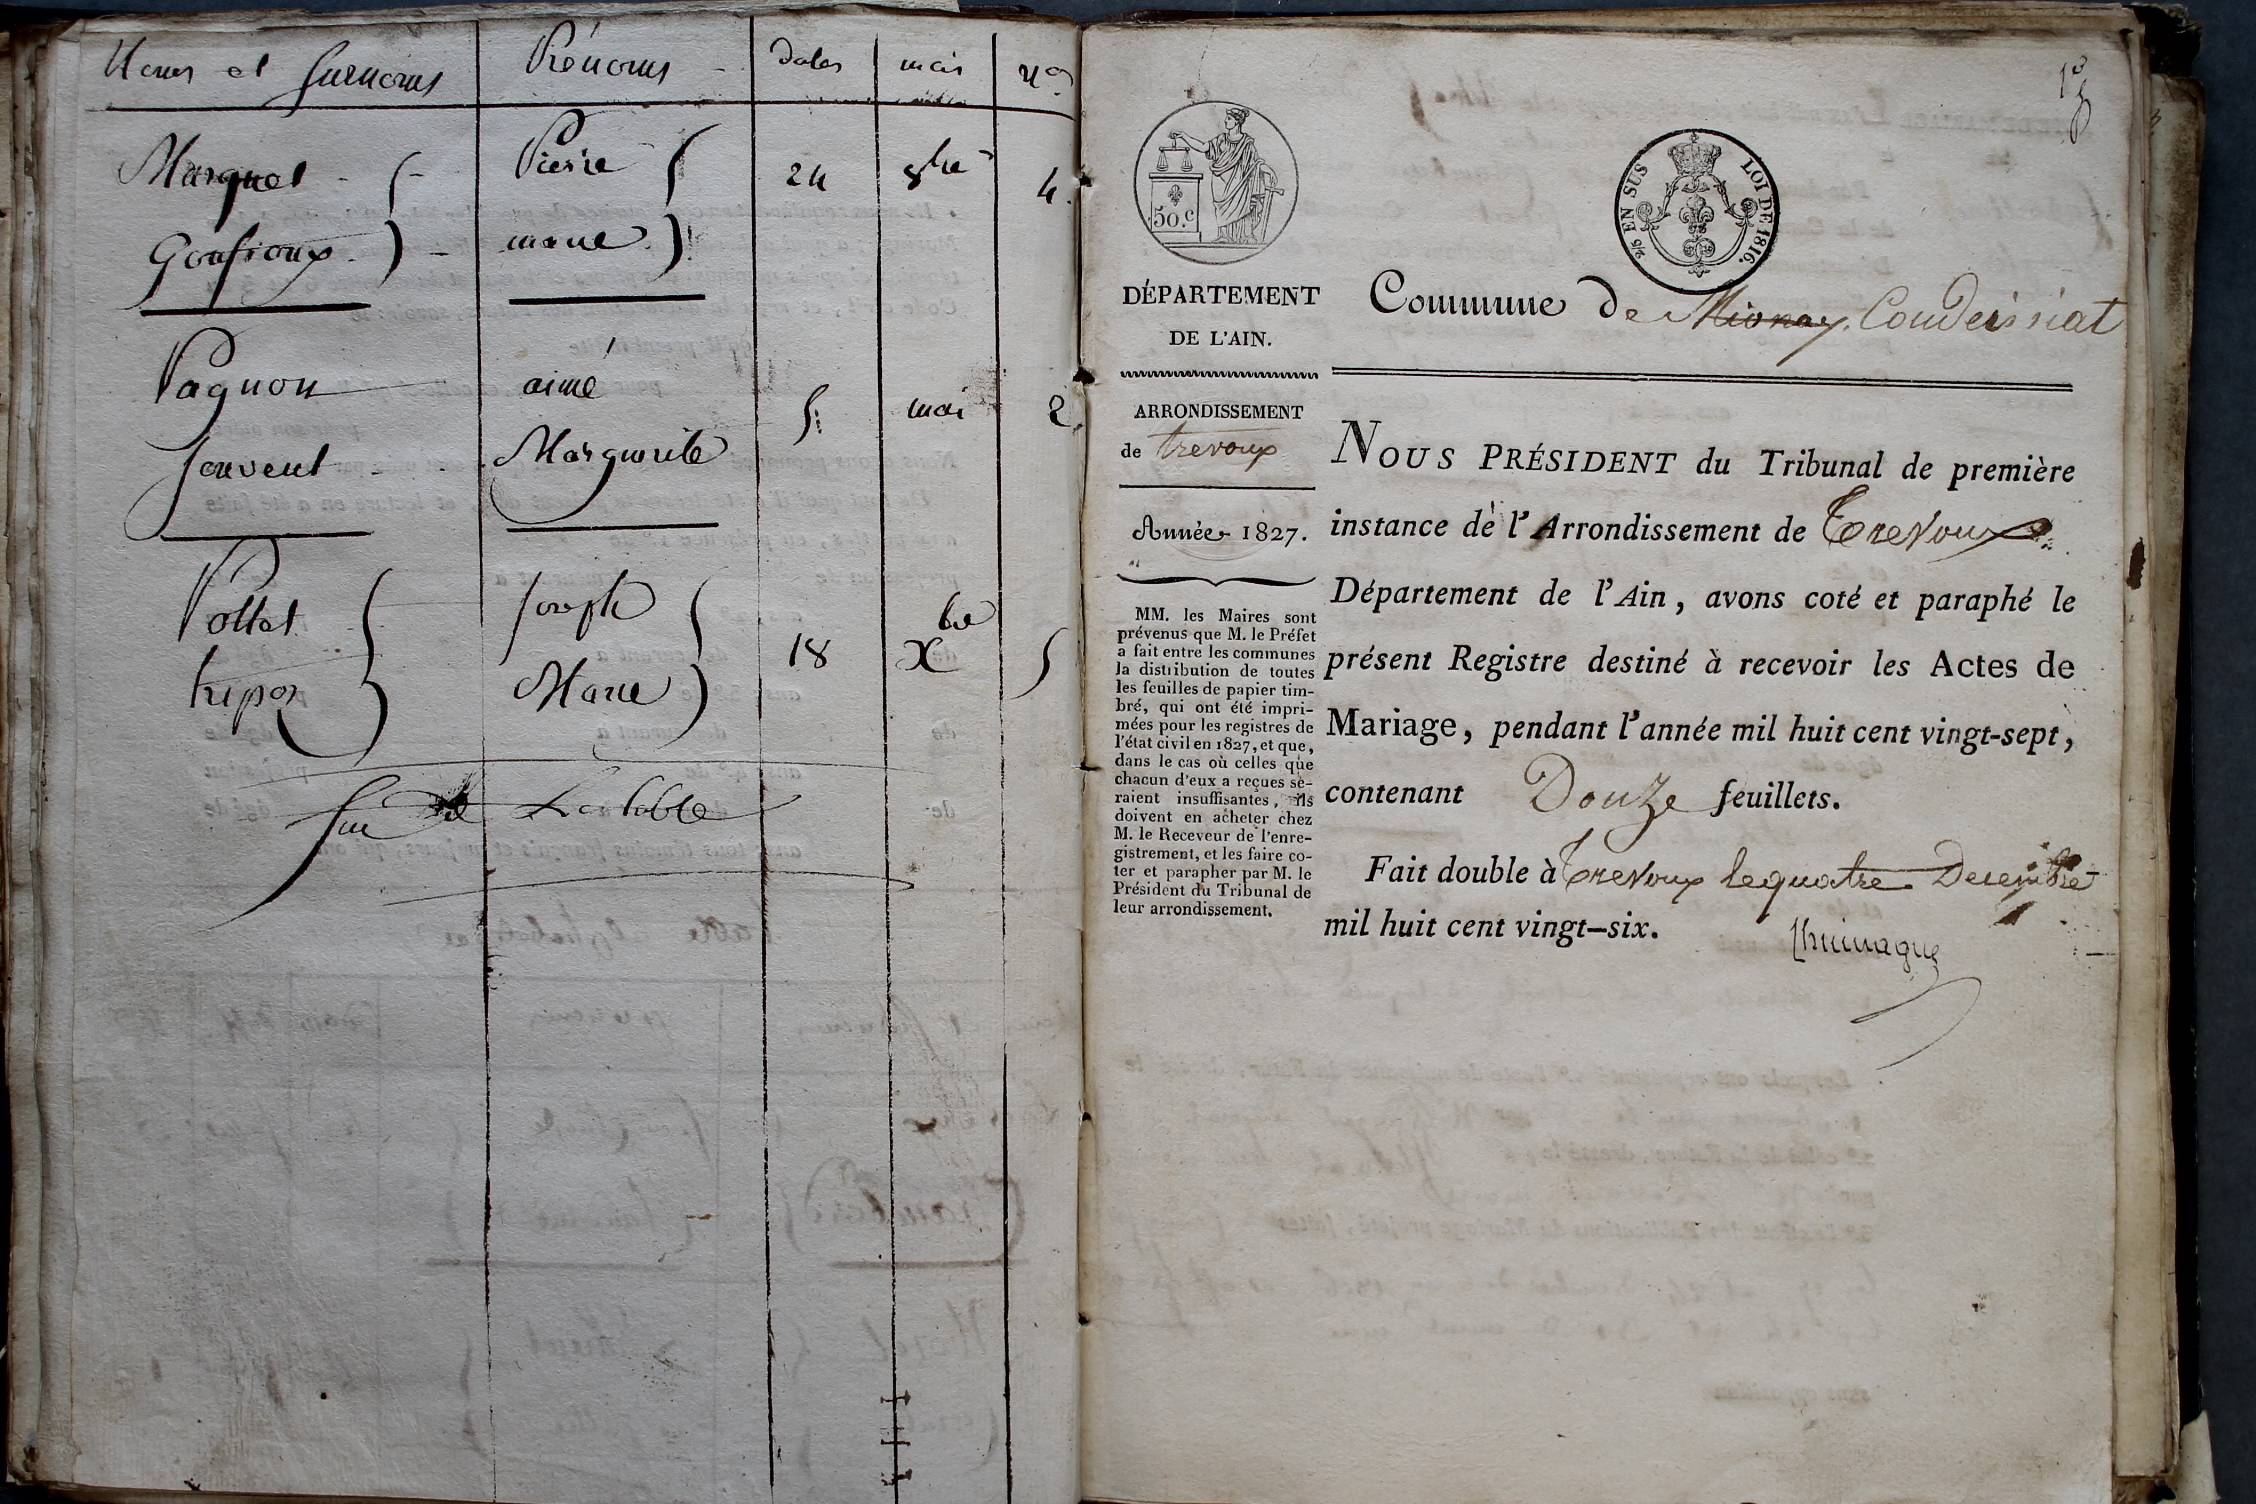 Noms et surnoms Prénoms dates mois Nos
Marguet Pierre 24 8bre 4.
Goufioux marie
Pagnon aimé 5 mai 2
Jouvent Marguerite
Pollet Joseph 18 Xbre 5
tripoz Marie
fin de La table
50.c
2/5 EN SUS LOI DE 1816.
DÉPARTEMENT
DE L'AIN.
ARRONDISSEMENT
de trevoux
Année 1827.
MM. les Maires sont
prévenus que M. le Préfet
a fait entre les communes
la distribution de toutes
les feuilles de papier tim-
bré, qui ont été impri-
mées pour les registres de
l'état civil en 1827, et que,
dans le cas où celles que
chacun d'eux a reçues se-
raient insuffisantes, ils
doivent en acheter chez
M. le Receveur de l'enre-
gistrement, et les faire co-
ter et parapher par M. le
Président du Tribunal de
leur arrondissement.
Commune de Mionay. Condeissiat
NOUS PRÉSIDENT du Tribunal de première
instance de l'Arrondissement de Trevoux
Département de l'Ain, avons coté et paraphé le
présent Registre destiné à recevoir les Actes de
Mariage, pendant l'année mil huit cent vingt-sept,
contenant Douze feuillets.
Fait double à Trevoux le quatre Decembre
mil huit cent vingt-six.